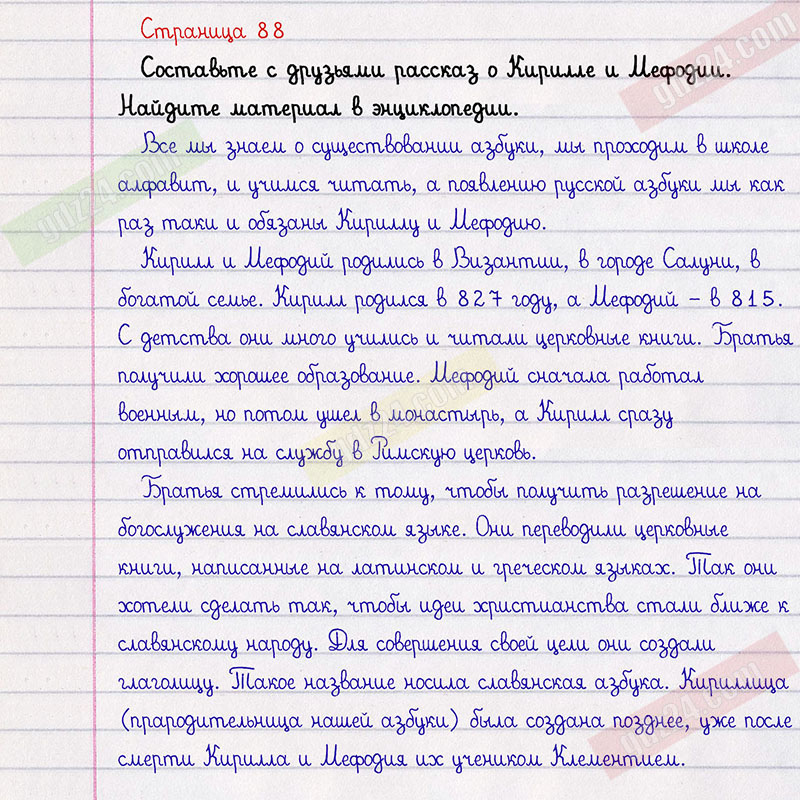 Страница 88
Составьте с друзьями рассказ о Кирилле и Мефодии.
Найдите материал в энциклопедии.
Все мы знаем о существовании азбуки, мы проходим в школе
алфавит, и учимся читать, а появлению русской азбуки мы как
раз таки и обязаны Кириллу и Мефодию.
Кирилл и Мефодий родились в Византии, в городе Салуни, в
богатой семье. Кирилл родился в 827 году, а Мефодий – в 815.
С детства они много учились и читали церковные книги. Братья
получили хорошее образование. Мефодий сначала работал
военным, но потом ушел в монастырь, а Кирилл сразу
отправился на службу в Римскую церковь.
Братья стремились к тому, чтобы получить разрешение на
богослужения на славянском языке. Они переводили церковные
книги, написанные на латинском и греческом языках. Так они
хотели сделать так, чтобы идеи христианства стали ближе к
славянскому народу. Для совершения своей цели они создали
глаголицу. Такое название носила славянская азбука. Кириллица
(прародительница нашей азбуки) была создана позднее, уже после
смерти Кирилла и Мефодия их учеником Клементием.
gdz24.com
gdz24.com
gdz24.com
gdz24.com